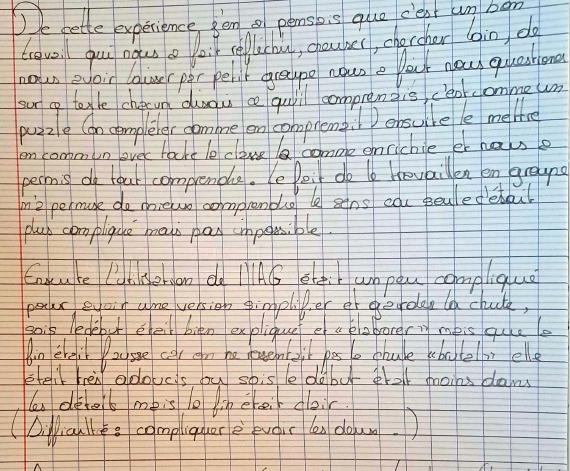 De cette expérience j'en ai pensais que c'est un bon
travail qui nous a fait réfléchir, creuser, chercher loin, de
nous avoir laisser par petit groupe nous a fait nous questionner
sur ce texte chacun disais ce qu'il comprenais, c'est comme un
puzzle (on compléter comme on comprenait) ensuite le mettre
en commun avec toute la classe la comme enrichie et nous a
permis de tout comprendre. Le fait de le travailler en groupe
m'a permise de mieux comprendre le sens car seule c'était
plus compliqué mais pas impossible.
Ensuite l'utilisation de l'IAG était un peu compliqué
pour avoir une version simplifier et garder la chute,
sois le début était bien expliqué et « élaborer » mais que la
fin était fausse car on ne ressentait pas la chute « brutal » elle
était très adoucis ou sois le début était moins dans
les détails mais la fin était clair.
(Difficultés : compliquer à avoir les deux.)